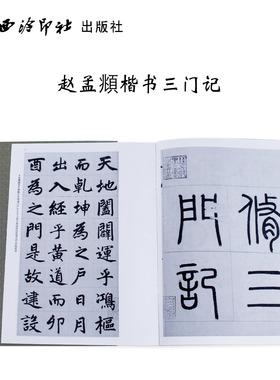 西泠印社 出版社
赵孟頫楷书三门记
脩三
門記
天地闔闢運乎鴻樞
而乾坤為之户日月
出入經乎黄道而卯
酉為之門是故建設